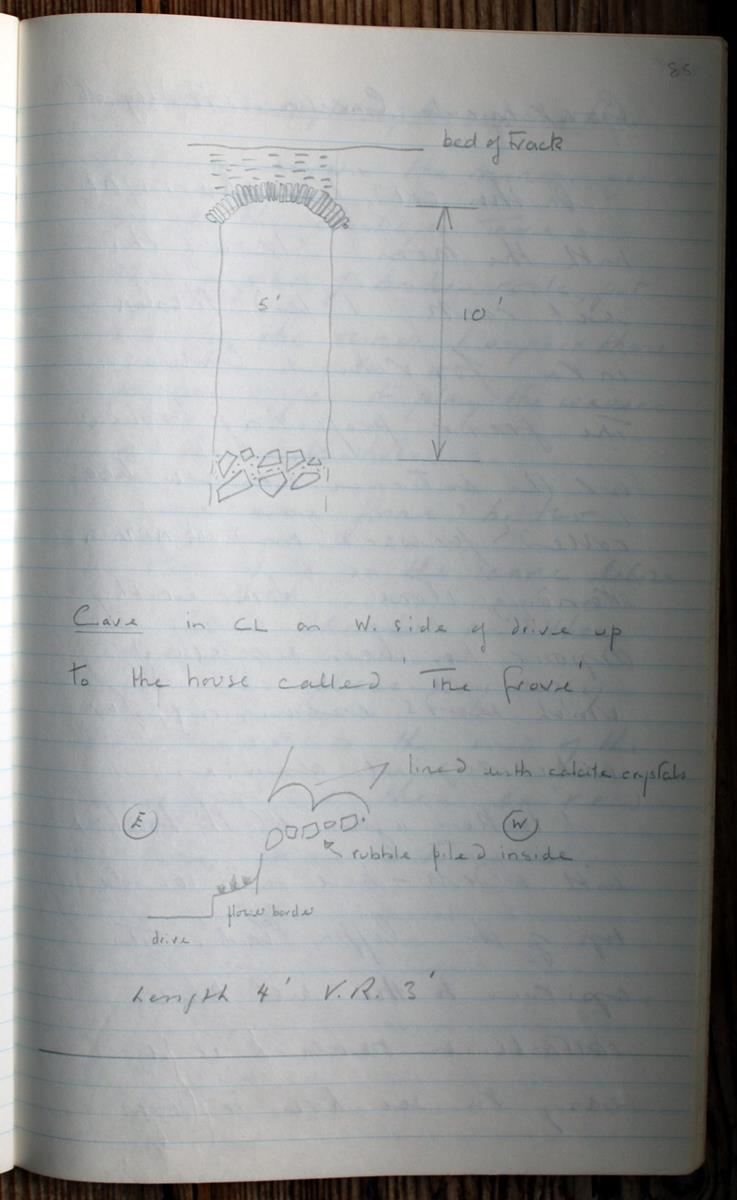 85
bed of track
5'
10'
Cave in CL on W. side of drive up
to the house called 'The Grove'
lined with calcite crystals
E
W
rubble piled inside
flower border
drive
Length 4' V.R. 3'